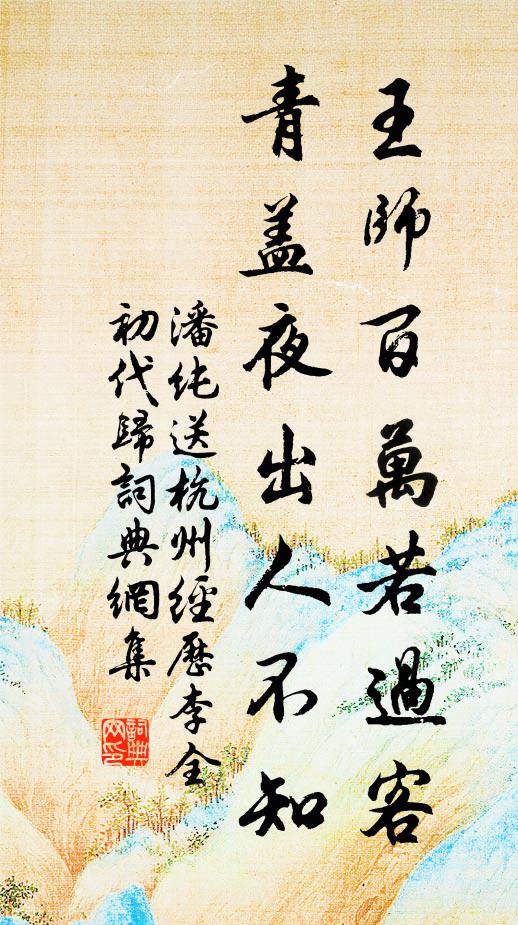 王師百萬若過客
青盖夜出人不知
潘純送杭州經歷李全
初代歸詞典網集
詞典
网印